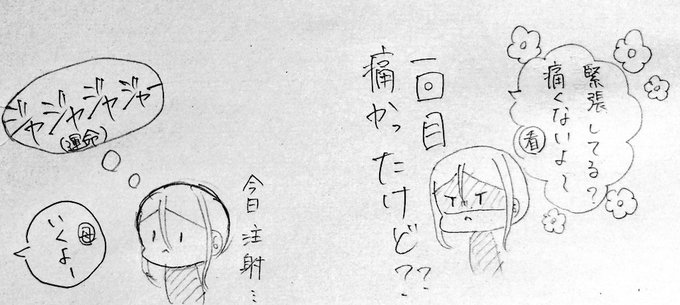 緊張してる?
痛くないよ〜
看
一回目
痛かったけど??
今日注射…
ジャジャジャジャー
(運命)
母
いくよー